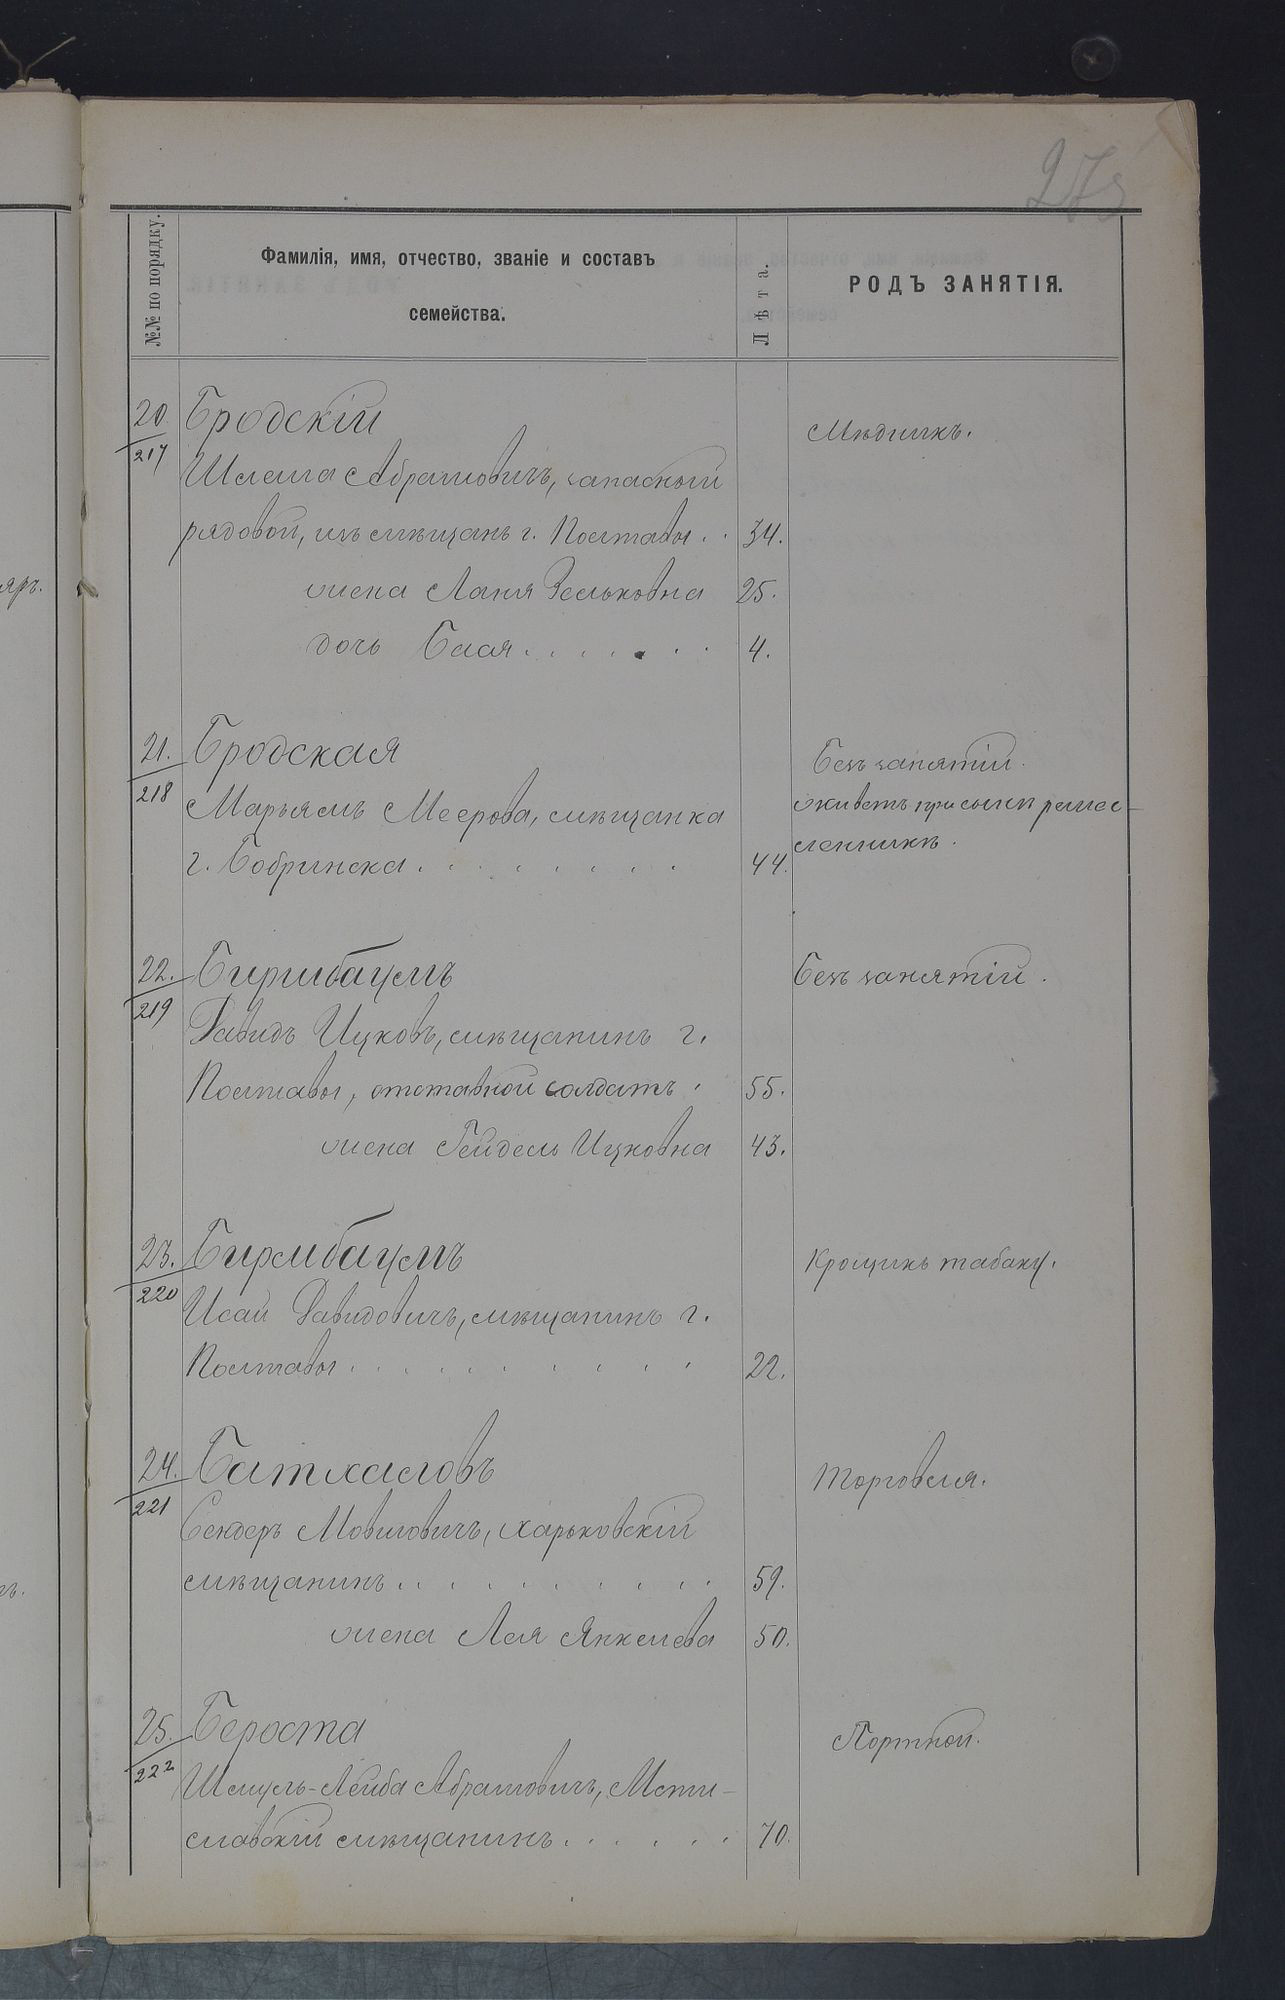 273
№№ по порядку.
Фамилія, имя, отчество, званіе и составъ
семейства.
Лѣта.
РОДЪ ЗАНЯТІЯ.
20. Бродскій
217
Мѣдникъ.
Шлема Абрамовичъ, запасный
рядовой, изъ мѣщанъ г. Полтавы . . 34.
жена Ханя Зельковна 25.
дочь Бася . . . . . . . 4.
21. Бродская
218
Безъ занятій.
Марьямъ Меерова, мѣщанка
живетъ при сынѣ ремес-
г. Бобринска . . . . . . . 44.
ленникѣ.
22. Бирмбаумъ
219
Безъ занятій.
Давидъ Ицковъ, мѣщанинъ г.
Полтавы, отставной солдатъ . 55.
жена Гейдель Ицковна 43.
23. Бирмбаумъ
220
Крошикъ табаку.
Исай Давидовичъ, мѣщанинъ г.
Полтавы . . . . . . . . . 22.
24. Батхаловъ
221
Торговля.
Сендеръ Мовшовичъ, харьковскій
мѣщанинъ . . . . . . . . . 59.
жена Лея Янкелева 50.
25. Береста
222
Портной.
Шмуль-Лейба Абрамовичъ, Мсти-
славскій мѣщанинъ . . . . . . 70.
яръ.